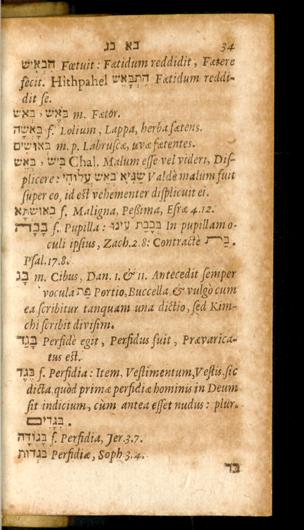 בא בג 34
הבאיש Fœtuit: Fœtidum reddidit, Fœtere
fecit. Hithpahel התבאש Fœtidum reddi-
dit se.
באש, באש m. Fœtor.
באשה f. Lolium, Lappa, herba fœtens.
באושים m. p. Labruscæ, uvæ fœtentes.
באש, ביש Chal. Malum esse vel videri, Dis-
plicere: שגיא באש עלוהי Valdè malum fuit
super eo, id est vehementer displicuit ei.
באושתא f. Maligna, Pessima, Esræ 4.12.
בבה f. Pupilla: בבבת עינו In pupillam o-
culi ipsius, Zach. 2.8: Contractè בת.
Psal. 17.8.
בג m. Cibus, Dan. 1. & 11. Antecedit semper
vocula פת Portio, Buccella & vulgò cum
ea scribitur tanquam una dictio, sed Kim-
chi scribit divisim.
בגד Perfidè egit, Perfidus fuit, Prævarica-
tus est.
בגד f. Perfidia: Item, Vestimentum, Vestis. sic
dicta, quòd primæ perfidiæ hominis in Deum
sit indicium, cùm antea esset nudus: plur.
בגדים.
בגודה f. Perfidia, Jer. 3.7.
בגדות Perfidiæ, Soph. 3.4.
בד